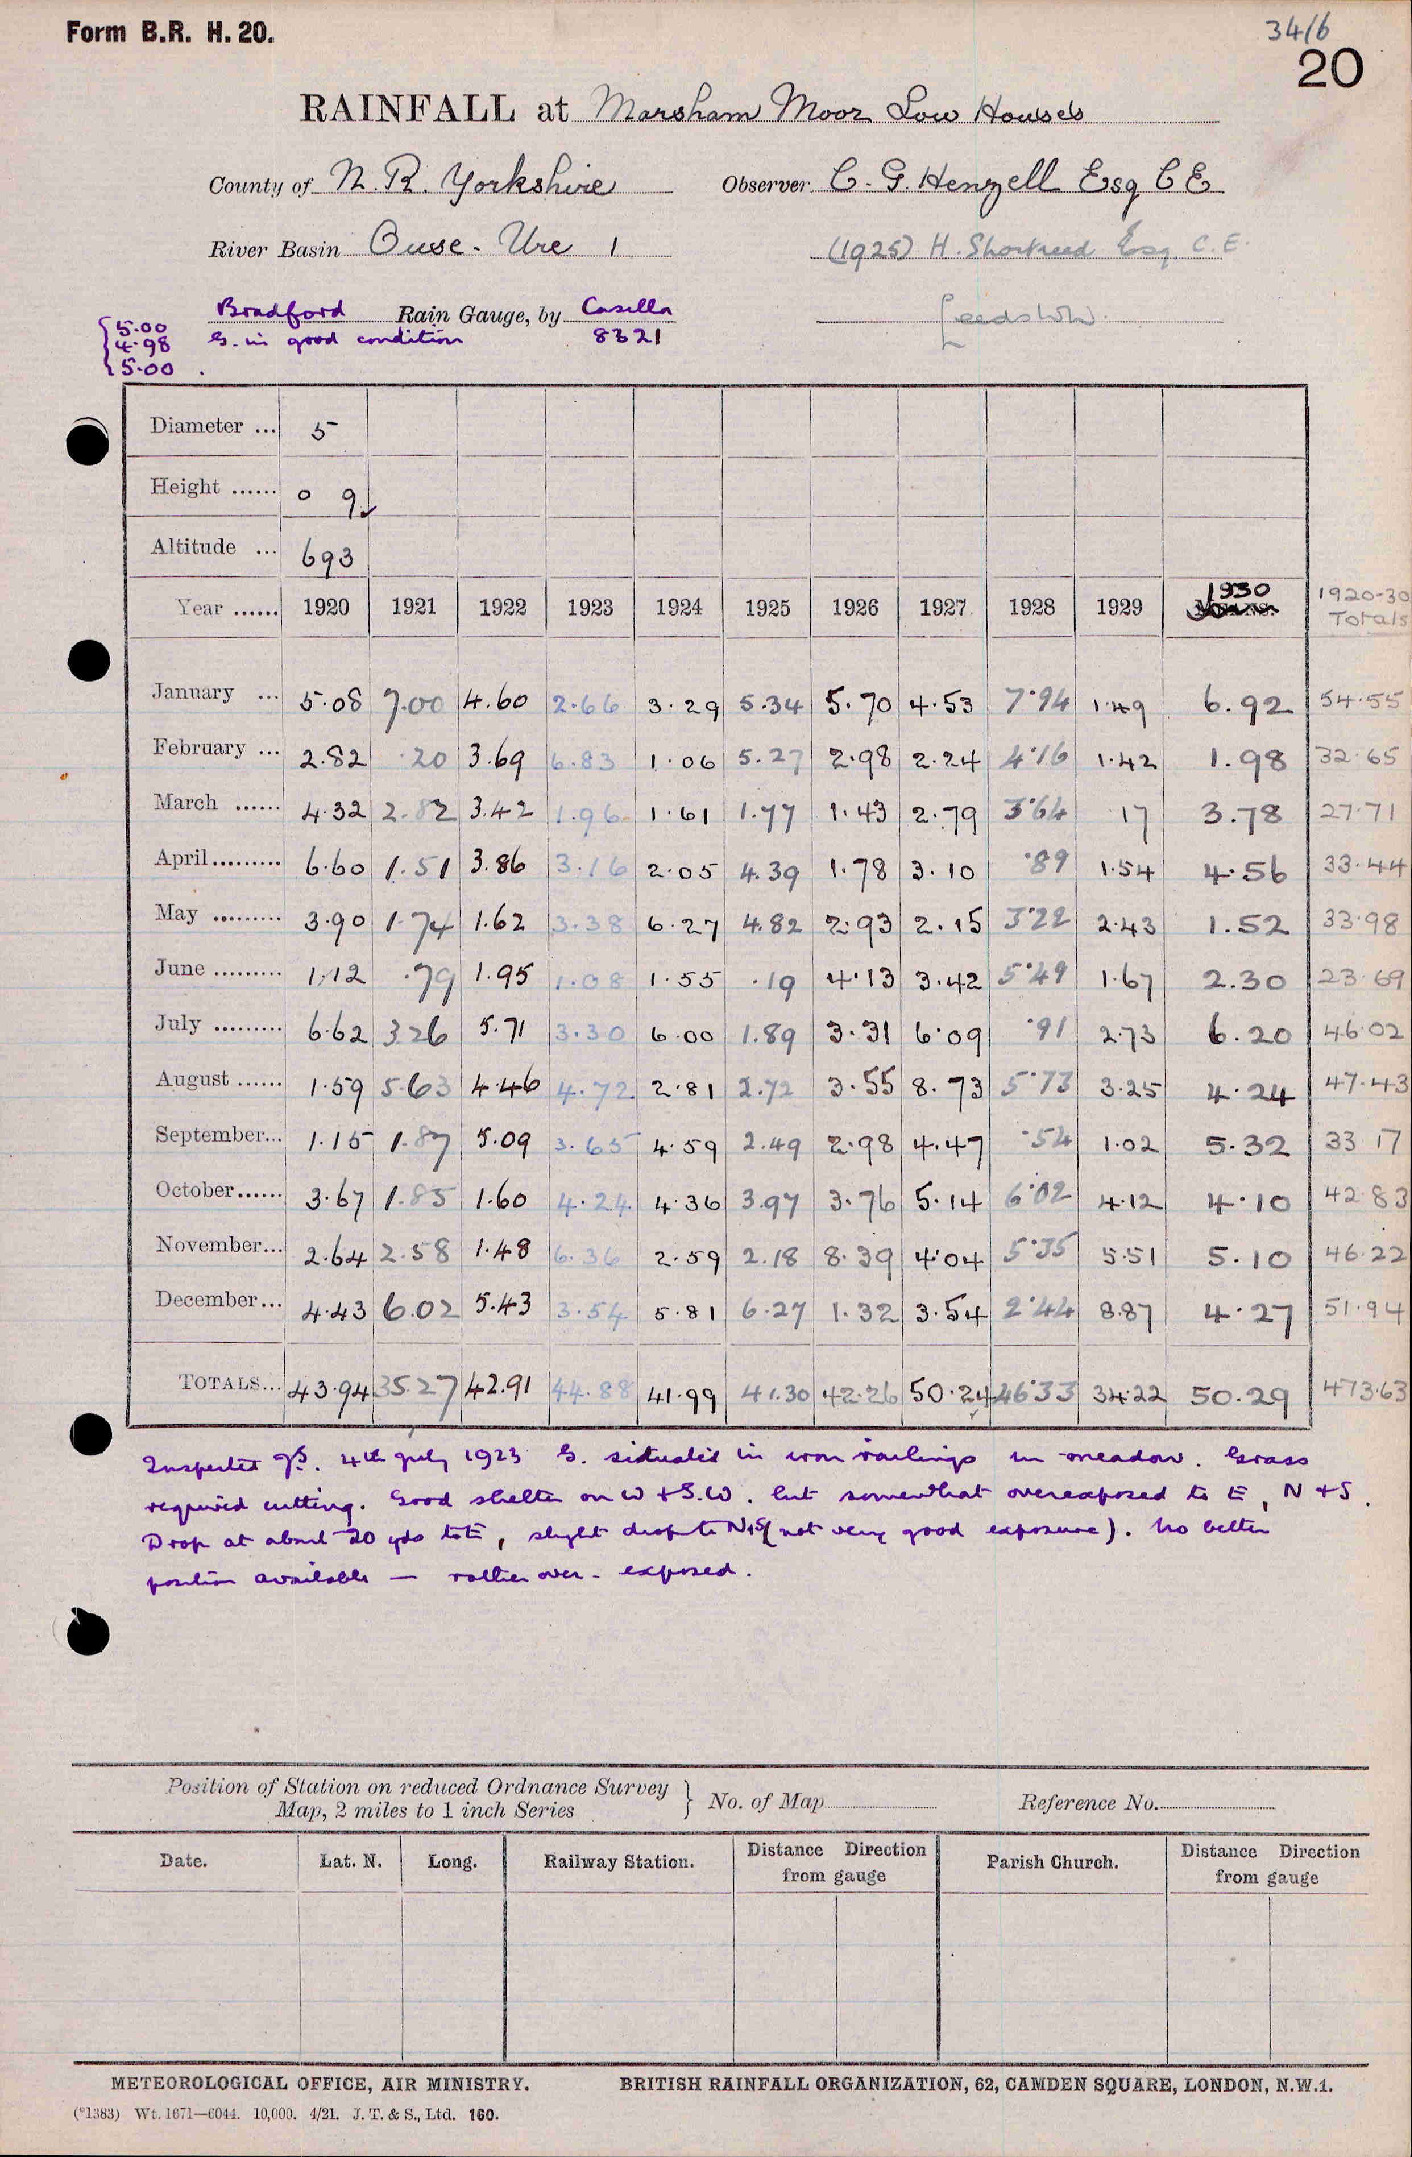 Form B.R. H. 20.
34/6
20
RAINFALL at Marsham Moor Low Houses
County of N. R. Yorkshire Observer C. G. Henzell Esq C E
River Basin Ouse - Ure 1 (1925) H. Shortreed Esq. C. E.
Bradford Rain Gauge, by Casella Leeds W.W.
5.00 G. in good condition 8321
4.98
5.00
Diameter ... 5
Height ...... 0 9
Altitude ... 693
Year ...... 1920 1921 1922 1923 1924 1925 1926 1927 1928 1929 1930 1920-30 Totals
January ... 5.08 7.00 4.60 2.66 3.29 5.34 5.70 4.53 7.94 1.49 6.92 54.55
February ... 2.82 .20 3.69 6.83 1.06 5.27 2.98 2.24 4.16 1.42 1.98 32.65
March ...... 4.32 2.82 3.42 1.96 1.61 1.77 1.43 2.79 3.64 17 3.78 27.71
April ......... 6.60 1.51 3.86 3.16 2.05 4.39 1.78 3.10 .89 1.54 4.56 33.44
May ......... 3.90 1.74 1.62 3.38 6.27 4.82 2.93 2.15 3.22 2.43 1.52 33.98
June ......... 1.12 .79 1.95 1.08 1.55 .19 4.13 3.42 5.49 1.67 2.30 23.69
July ......... 6.62 3.26 5.71 3.30 6.00 1.89 3.31 6.09 .91 2.73 6.20 46.02
August ...... 1.59 5.63 4.46 4.72 2.81 2.72 3.55 8.73 5.73 3.25 4.24 47.43
September... 1.15 1.87 5.09 3.65 4.59 2.49 2.98 4.47 .54 1.02 5.32 33 17
October ...... 3.67 1.85 1.60 4.24 4.36 3.97 3.76 5.14 6.02 4.12 4.10 42.83
November... 2.64 2.58 1.48 6.36 2.59 2.18 8.39 4.04 5.35 5.51 5.10 46.22
December ... 4.43 6.02 5.43 3.54 5.81 6.27 1.32 3.54 2.44 8.87 4.27 51.94
TOTALS... 43.94 35.27 42.91 44.88 41.99 41.30 42.26 50.24 46.33 34.22 50.29 473.63
Inspected 4th July 1923 G. situated in iron railings in meadow. Grass
required cutting. Good shelter on W + S.W. but somewhat overexposed to E, N + S.
Drop at about 20 yds to E, slight drop to N+S (not very good exposure). No better
position available — rather over-exposed.
Position of Station on reduced Ordnance Survey
Map, 2 miles to 1 inch Series } No. of Map Reference No.
Date. Lat. N. Long. Railway Station. Distance Direction from gauge Parish Church. Distance Direction from gauge
METEOROLOGICAL OFFICE, AIR MINISTRY. BRITISH RAINFALL ORGANIZATION, 62, CAMDEN SQUARE, LONDON, N.W.1.
(*1383) Wt. 1671—6044. 10,000. 4/21. J. T. & S., Ltd. 160.